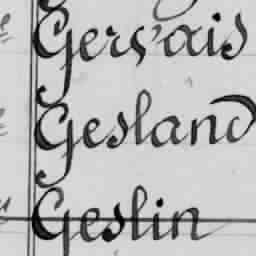 Gervais
Gesland
Geslin